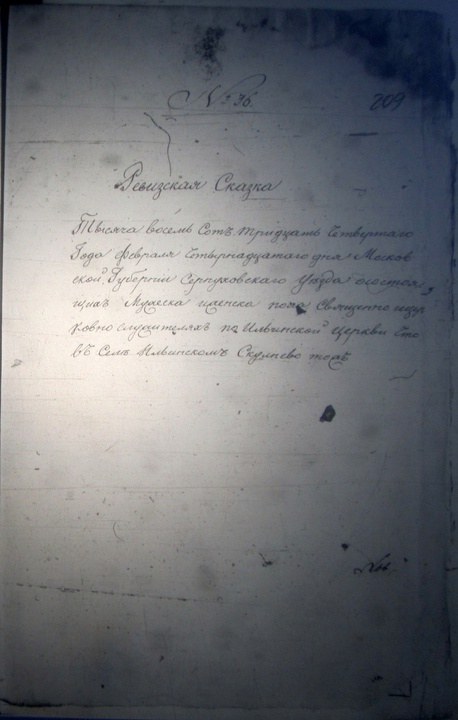 № 36.
209
Ревизская Сказка
Тысяча восемь Сотъ тридцать Четвертаго
Года февраля Четырнадцатаго дня Москов
ской Губернiи Серпуховскаго Уезда осостоя
щихъ Мужеска женска пола Священно цер
ковно служителяхъ при Ильинской Церкви что
въ Селе Ильинскомъ тожъ